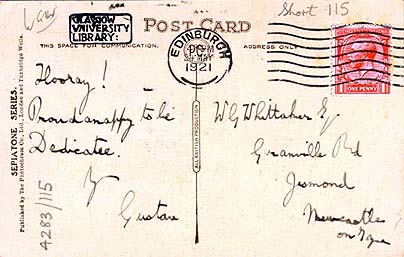 Law
GLASGOW
UNIVERSITY
LIBRARY:
POST CARD
Short 115
THIS SPACE FOR COMMUNICATION
ADDRESS ONLY
EDINBURGH
PM
MAY
1921
ONE PENNY
Hooray!
Proud an appy to be
Dedicatee.
Gustav
W G Whittaker Esq
Granville Rd
Jesmond
Newcastle
on Tyne
SEPIATONE SERIES.
Published by The Photochrom Co., Ltd., London and Tunbridge Wells.
ALL BRITISH PRODUCTION
4283/115